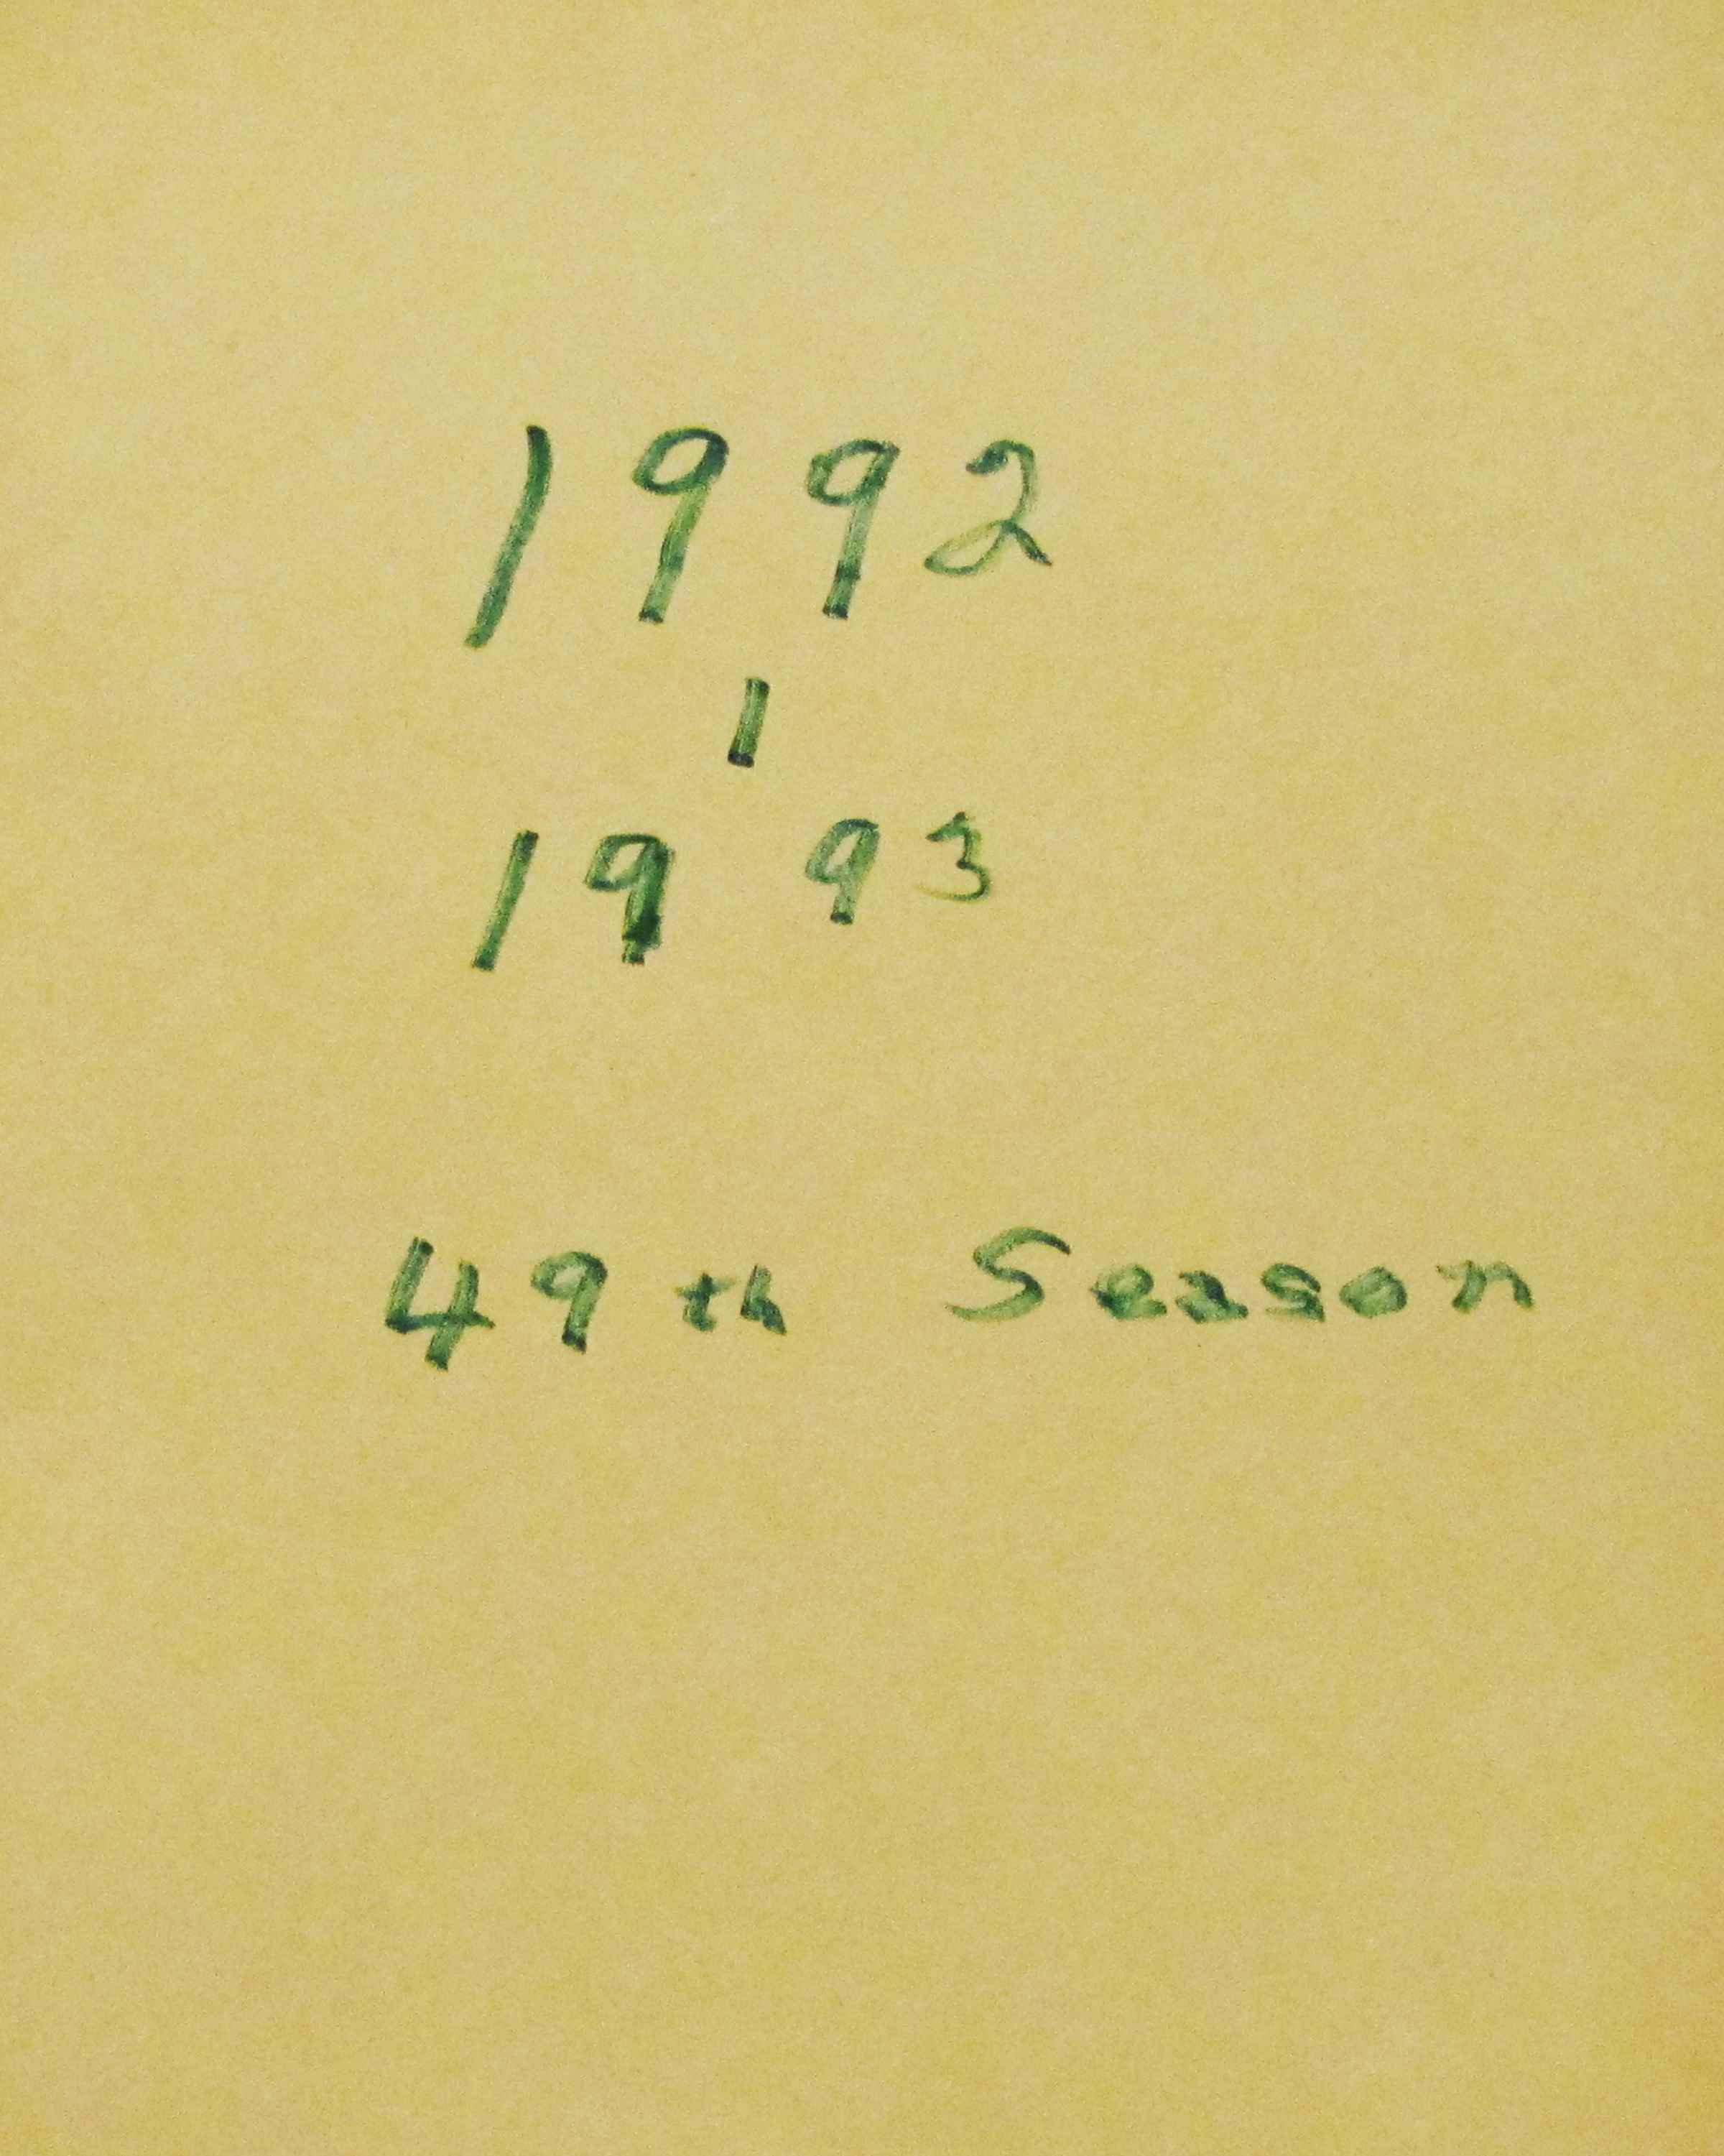 1992
|
1993
49th Season